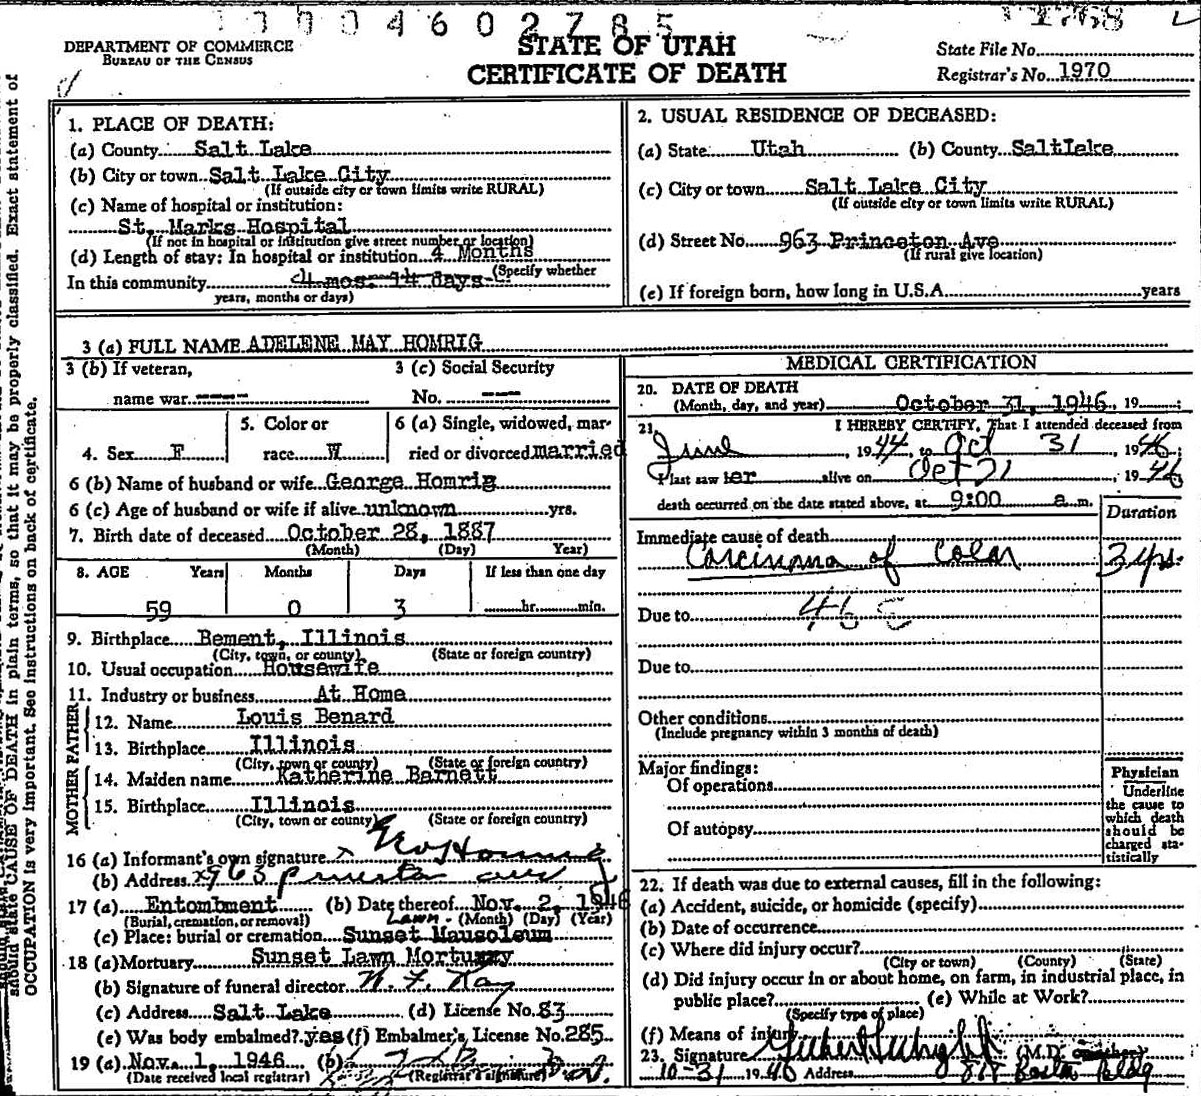 0 0 0 4 6 0 2 7 8 5
1768
DEPARTMENT OF COMMERCE
BUREAU OF THE CENSUS
STATE OF UTAH
CERTIFICATE OF DEATH
State File No.
Registrar's No. 1970
1. PLACE OF DEATH:
(a) County Salt Lake
(b) City or town Salt Lake City
(If outside city or town limits write RURAL)
(c) Name of hospital or institution:
St. Marks Hospital
(If not in hospital or institution give street number or location)
(d) Length of stay: In hospital or institution 4 Months
(Specify whether
In this community 4 mos. 14 days
years, months or days)
2. USUAL RESIDENCE OF DECEASED:
(a) State Utah (b) County SaltLake
(c) City or town Salt Lake City
(If outside city or town limits write RURAL)
(d) Street No. 963 Princeton Ave
(If rural give location)
(e) If foreign born, how long in U.S.A. years
3 (a) FULL NAME ADELENE MAY HOMRIG
3 (b) If veteran,
name war ----
3 (c) Social Security
No. ---
4. Sex F
5. Color or
race W
6 (a) Single, widowed, mar-
ried or divorced married
6 (b) Name of husband or wife George Homrig
6 (c) Age of husband or wife if alive unknown yrs.
7. Birth date of deceased October 28, 1887
(Month) (Day) Year)
8. AGE Years Months Days If less than one day
59 0 3 hr. min.
9. Birthplace Bement, Illinois
(City, town, or county) (State or foreign country)
10. Usual occupation Housewife
11. Industry or business At Home
FATHER
12. Name Louis Benard
13. Birthplace Illinois
(City, town or county) (State or foreign country)
MOTHER
14. Maiden name Katherine Barnett
15. Birthplace Illinois
(City, town or county) (State or foreign country)
16 (a) Informant's own signature x Geo Homrig
(b) Address x963 Princeton ave
17 (a) Entombment (b) Date thereof Nov. 2, 1946
(Burial, cremation, or removal) (Month) (Day) (Year)
Lawn
(c) Place: burial or cremation Sunset Mausoleum
18 (a) Mortuary Sunset Lawn Mortuary
(b) Signature of funeral director
(c) Address Salt Lake (d) License No. 83
(e) Was body embalmed? yes (f) Embalmer's License No. 285
19 (a) Nov. 1, 1946 (b)
(Date received local registrar) (Registrar's signature)
MEDICAL CERTIFICATION
20. DATE OF DEATH
(Month, day, and year) October 31, 1946, 19 ;
21. I HEREBY CERTIFY, That I attended deceased from
June, 1944, to Oct 31 1946;
I last saw her alive on Oct 31, 1946
death occurred on the date stated above, at 9:00 a.m.
Duration
Immediate cause of death
Carcinoma of Colon 3 yrs.
Due to 46 E
Due to
Other conditions
(Include pregnancy within 3 months of death)
Major findings:
Of operations
Of autopsy
Physician
Underline
the cause to
which death
should be
charged sta-
tistically
22. If death was due to external causes, fill in the following:
(a) Accident, suicide, or homicide (specify)
(b) Date of occurrence
(c) Where did injury occur?
(City or town) (County) (State)
(d) Did injury occur in or about home, on farm, in industrial place, in
public place? (e) While at Work?
(Specify type of place)
(f) Means of injury
23. Signature (M.D.
10-31 1946 Address Bldg
should state CAUSE OF DEATH in plain terms, so that it may be properly classified. Exact statement of
OCCUPATION is very important. See instructions on back of certificate.